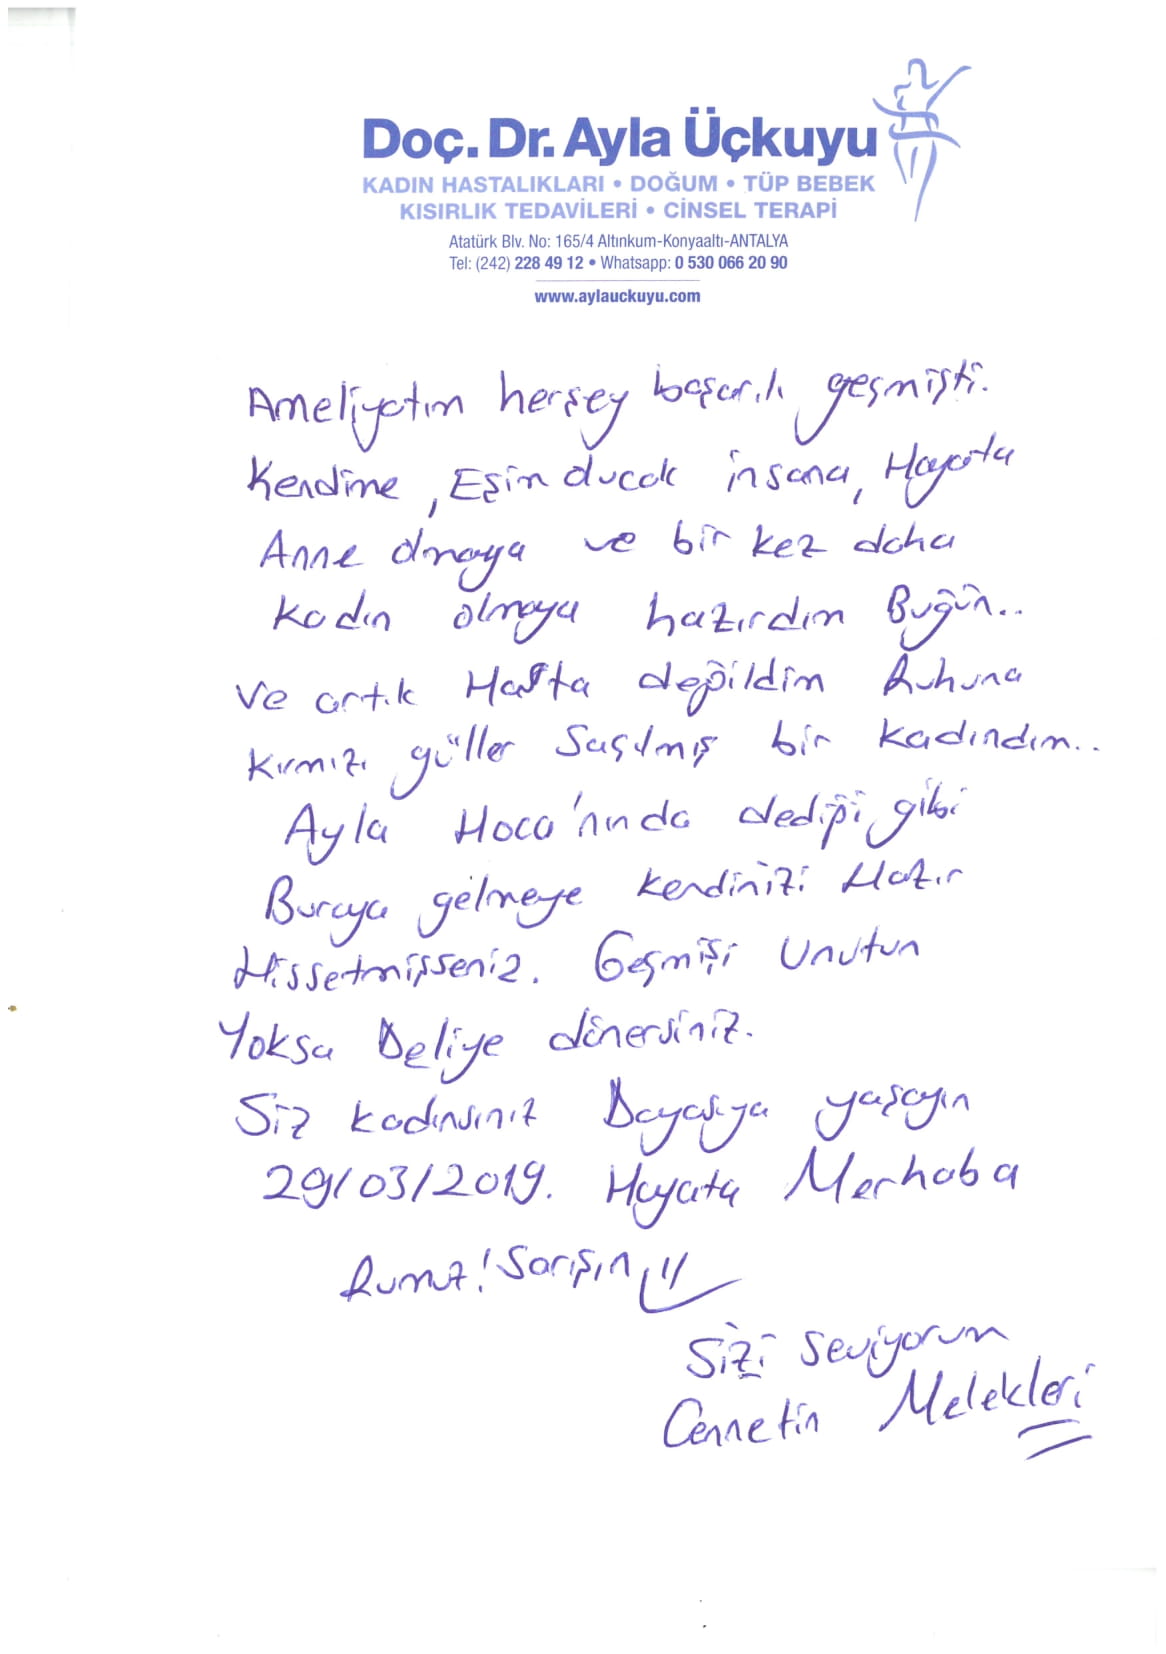 Doç. Dr. Ayla Üçkuyu
KADIN HASTALIKLARI • DOĞUM • TÜP BEBEK
KISIRLIK TEDAVİLERİ • CİNSEL TERAPİ
Atatürk Blv. No: 165/4 Altınkum-Konyaaltı-ANTALYA
Tel: (242) 228 49 12 • Whatsapp: 0 530 066 20 90
www.aylauckuyu.com
Ameliyatım herşey başarılı geçmişti.
Kendime, Eşim olucak insana, Hayata
Anne olmaya ve bir kez daha
Kadın olmaya hazırdım Bugün..
Ve artık Hasta değildim Ruhuna
Kırmızı güller Saçılmış bir kadındım..
Ayla Hoca'nında dediği gibi
Buraya gelmeye kendinizi Hazır
Hissetmişseniz. Geçmişi Unutun
Yoksa Deliye dönersiniz.
Siz kadınsınız Doyasıya yaşayın
29/03/2019. Hayata Merhaba
Rumuz! Sarışın
Sizi Seviyorum
Cennetin Melekleri